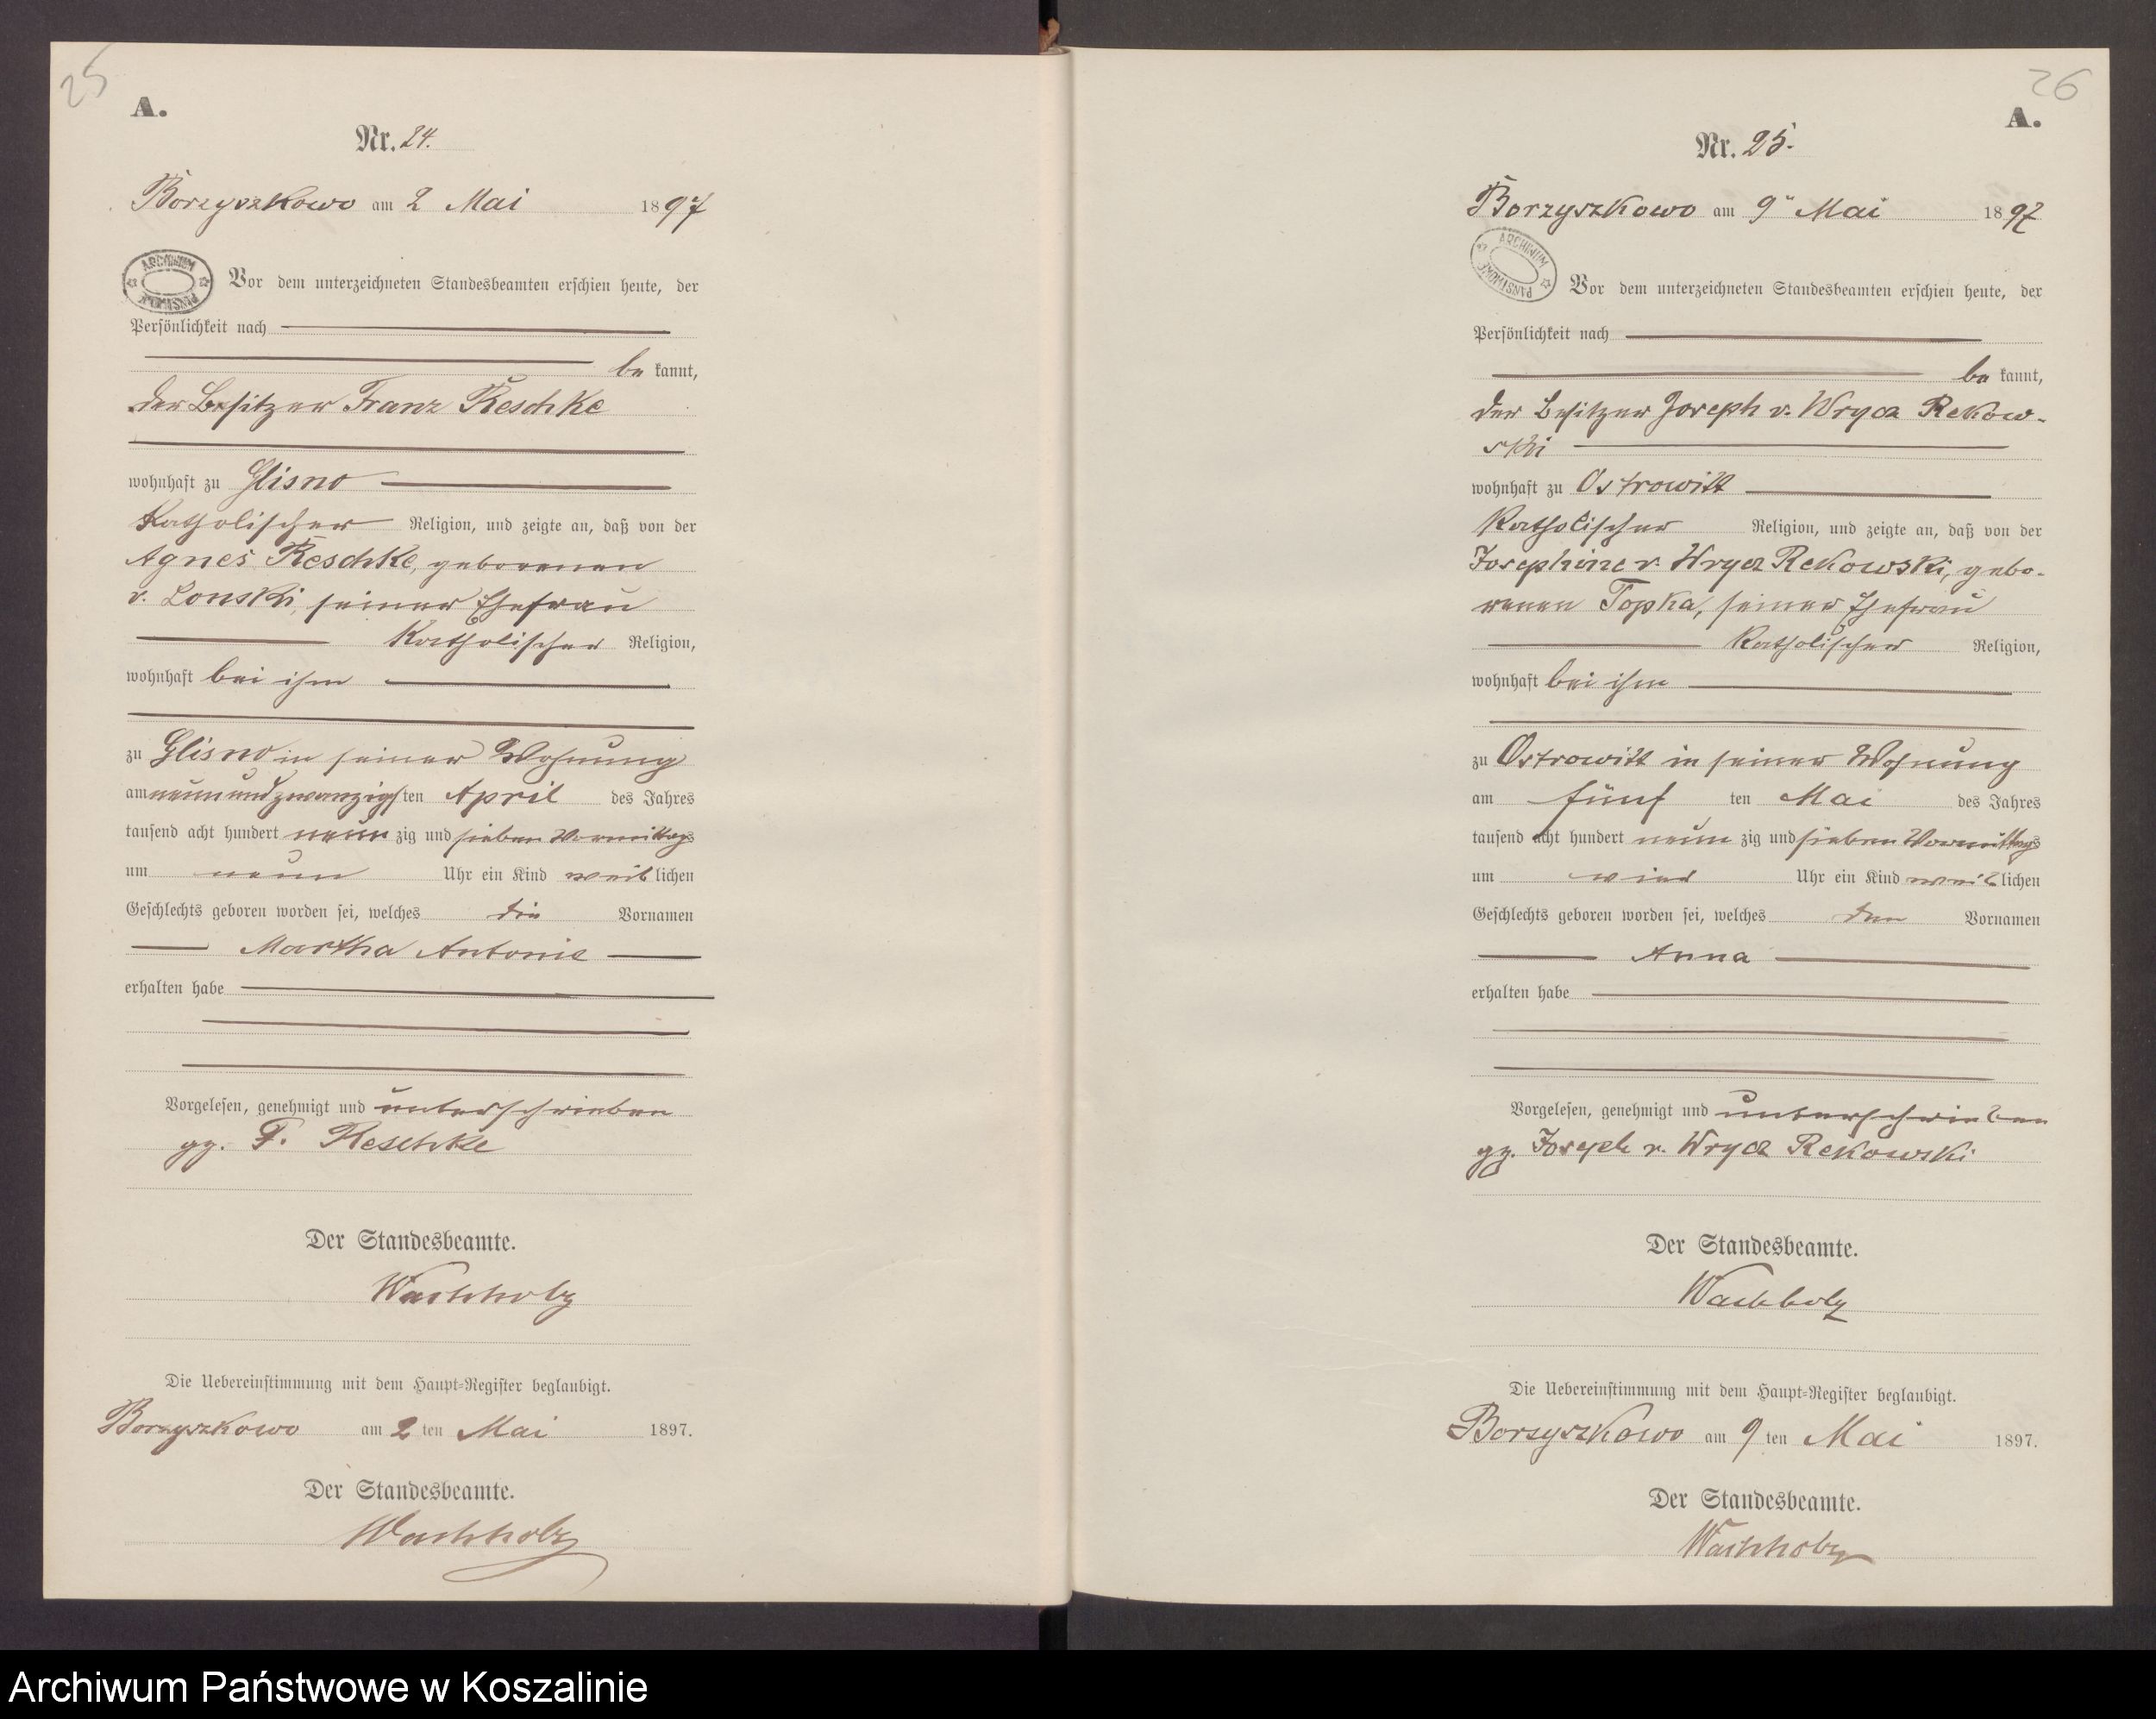 25
A.
Nr. 24.
Borzyszkowo am 2 Mai 1897
ARCHIWUM PAŃSTWOWE
Vor dem unterzeichneten Standesbeamten erschien heute, der
Persönlichkeit nach
be kannt,
der Besitzer Franz Reschke
wohnhaft zu Glisno
Katholischer Religion, und zeigte an, daß von der
Agnes Reschke, geborenen
v. Lonski, seiner Ehefrau
Katholischer Religion,
wohnhaft bei ihm
zu Glisno in seiner Wohnung
am neunundzwanzigsten April des Jahres
tausend acht hundert neun zig und sieben Vormittags
um neun Uhr ein Kind weiblichen
Geschlechts geboren worden sei, welches die Vornamen
Martha Antonie
erhalten habe
Vorgelesen, genehmigt und unterschrieben
gz. F. Reschke
Der Standesbeamte.
Wachholz
Die Uebereinstimmung mit dem Haupt-Register beglaubigt.
Borzyszkowo am 2 ten Mai 1897.
Der Standesbeamte.
Wachholz
26
A.
Nr. 25.
Borzyszkowo am 9 Mai 1897
ARCHIWUM PAŃSTWOWE
Vor dem unterzeichneten Standesbeamten erschien heute, der
Persönlichkeit nach
be kannt,
der Besitzer Joseph v. Wrycz Rekow-
ski
wohnhaft zu Ostrowitt
Katholischer Religion, und zeigte an, daß von der
Josephine v. Wrycz Rekowski, gebo-
renen Topka, seiner Ehefrau
Katholischer Religion,
wohnhaft bei ihm
zu Ostrowitt in seiner Wohnung
am fünf ten Mai des Jahres
tausend acht hundert neun zig und sieben Vormittags
um vier Uhr ein Kind weiblichen
Geschlechts geboren worden sei, welches den Vornamen
Anna
erhalten habe
Vorgelesen, genehmigt und unterschrieben
gz. Joseph v. Wrycz Rekowski
Der Standesbeamte.
Wachholz
Die Uebereinstimmung mit dem Haupt-Register beglaubigt.
Borzyszkowo am 9 ten Mai 1897.
Der Standesbeamte.
Wachholz
Archiwum Państwowe w Koszalinie